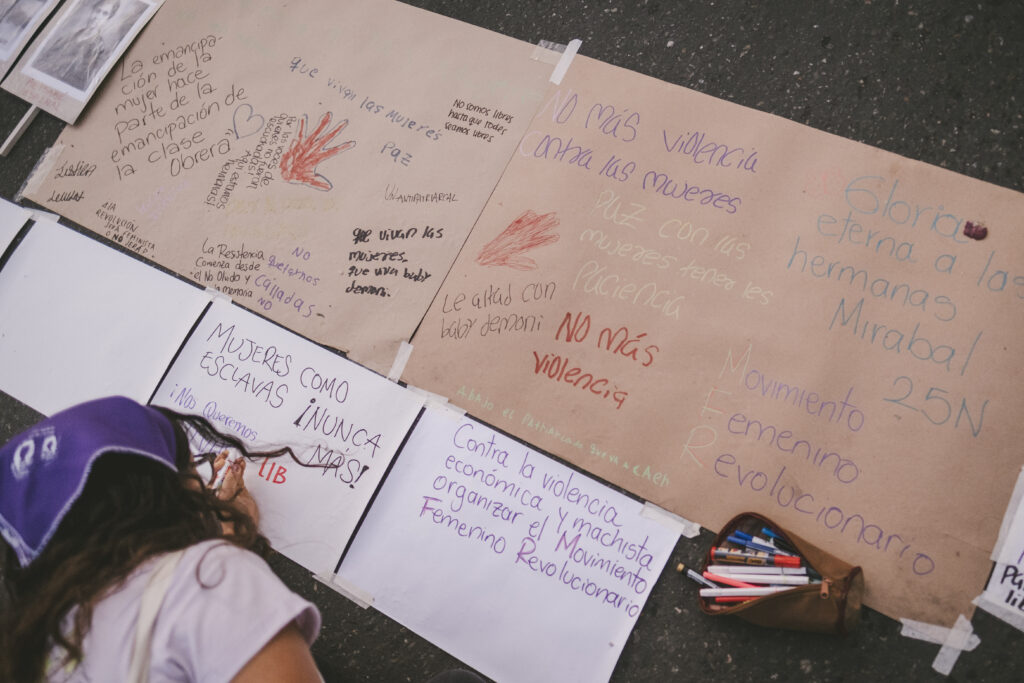 La emancipa-
ción de la
mujer hace
parte de la
emancipación de
la clase
Obrera
que vivan las mujeres
PAZ
No somos libres
hasta que todes
seamos libres
Un antipatriarcal
aquí estamos
LA
REVOLUCIÓN
SERÁ FEMINISTA
O NO SERÁ
La Resistencia
Comienza desde
el No Olvido y
la memoria
NO
Queremos
calladas
NO
que vivan las
mujeres.
que viva baby
demoni.
No más violencia
Contra las mujeres
Paz con las
mujeres tener les
Paciencia
Le altad con
baby demoni
NO MÁS
violencia
Abajo el Patriarcado que va a CAER
Gloria
eterna a las
hermanas
Mirabal
25N
Movimiento
Femenino
Revolucionario
MUJERES COMO
ESCLAVAS ¡NUNCA
MÁS!
¡Nos Queremos
LIB
Contra la violencia
económica y machista
organizar el Movimiento
Femenino Revolucionario